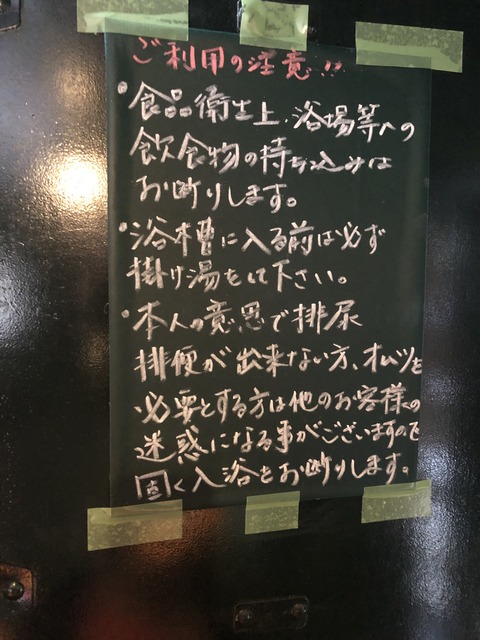 ご利用の注意!!
・食品衛生上、浴場等への
飲食物の持ち込みは
お断りします。
・浴槽に入る前は必ず
掛け湯をして下さい。
・本人の意思で排尿
排便が出来ない方、オムツを
必要とする方は他のお客様の
迷惑になる事がございますので
固く入浴をお断りします。